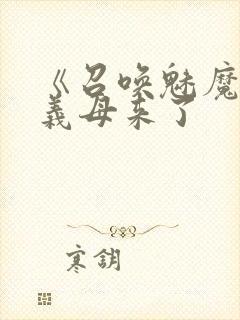 《召唤魅魔
義母来了
寒钥